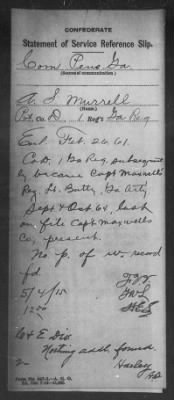 CONFEDERATE
Statement of Service Reference Slip.
Com Pens. Ga.
(Source of communication.)
A. S. Murrell
(Name.)
Pvt Co D. 1 Reg't Ga Reg
Enl. Feb. 26. 61.
Co D. 1 Ga Reg. subsequent
ly became Capt Maxwell's
Reg. Lt. Batty, Ga Arty
Sept & Oct 64, last
on file Capt Maxwells
Co, present.
No p. of w. record
fd.
5/4/15
C & E Div.
Nothing addl. found
Hasley